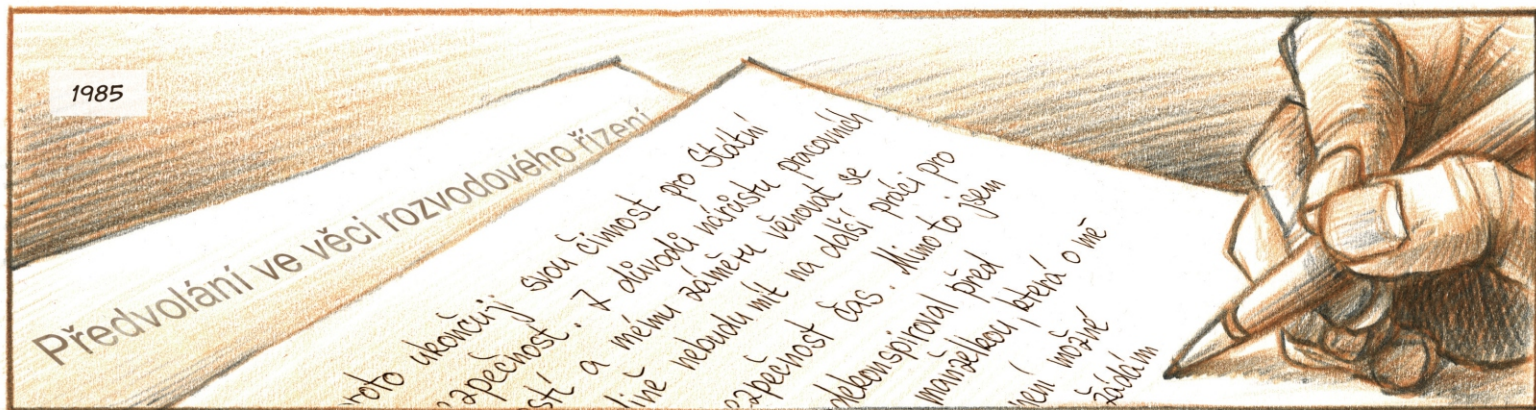 1985
Předvolání ve věci rozvodového řízení
roto ukončuji svou činnost pro Státní
zpečnost. Z důvodů nárůstu pracovních
stí a mému záměru věnovat se
lině nebudu mít na další práci pro
zpečnost čas. Mimo to jsem
dekonspiroval před
manželkou, která o mé
není možné
žádám